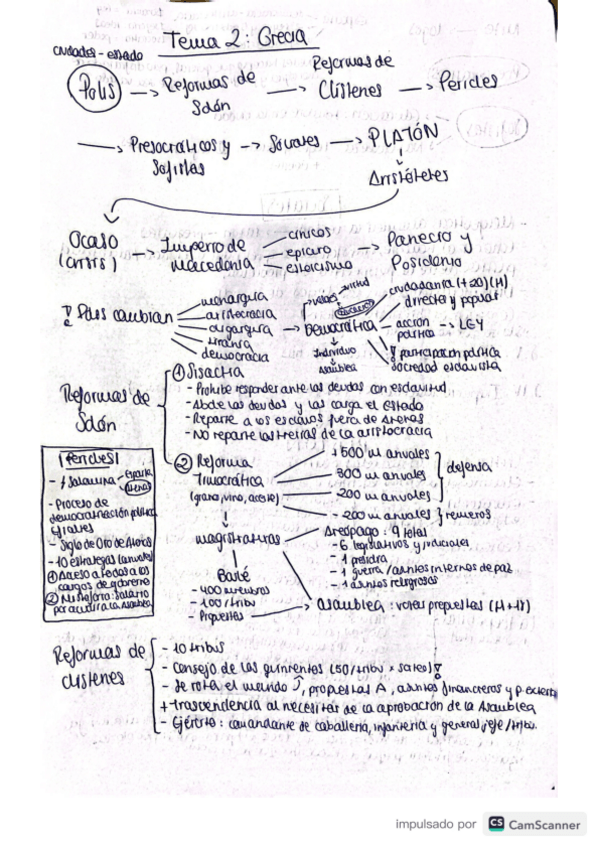 Tema 2: Grecia
ciudades-estado
Polis → Reformas de Solón → Reformas de Clístenes → Pericles
→ Presocráticos y Sofistas → Sócrates → PLATÓN
Aristóteles
Ocaso (crisis) → Imperio de Macedonia
cínicos
epicuro
estoicismo
→ Panecio y Posidonio
Polis cambian
monarquía
aristocracia
oligarquía
tiranía
democracia
→ Democrática
virtud
Individuo
Asamblea
ciudadanía (+20) (H)
directa y popular
acción política → LEY
participación política
sociedad esclavista
Reformas de Solón
① Sisactia
- Prohibe responder ante las deudas con esclavitud
- Abole las deudas y las carga el Estado
- Reparte a los esclavos fuera de Atenas
- No reparte las tierras de la aristocracia
② Reforma Timocrática
(grano, vino, aceite)
+ 500 m anuales
300 m anuales
200 m anuales
defensa
- 200 m anuales } remeros
magistraturas
Areópago: 9 
- 6 legislativos y judiciales
- 1 presidía
- 1 guerra / asuntos internos de paz
- 1 asuntos religiosos
Bulé
- 400 miembros
- 100/tribu
- Propuestas
→ Asamblea: votar propuestas
Pericles
- Salamina
Esparta
Atenas
- Proceso de democratización política
- Siglo de Oro de Atenas
- 10 estrategas (anuales)
① Acceso a todos a los cargos de gobierno
② salario para acudir a la Asamblea
Reformas de Clístenes
- 10 tribus
- Consejo de los quinientos (50/tribu x sorteo)
- Se rota el mando, propuestas A, asuntos financieros y p. exterior
+ trascendencia al necesitar de la aprobación de la Asamblea
- Ejército: comandante de caballería, infantería y general jefe/tribu.
impulsado por CS CamScanner